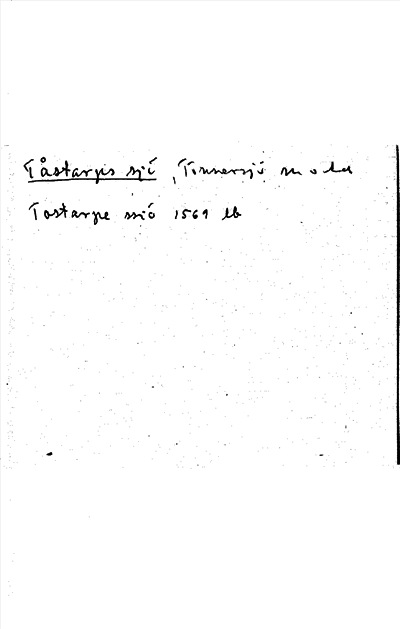 Tåstarps sjö, Tönnersjö sn o hd
Tostarpe siö 1569 lb